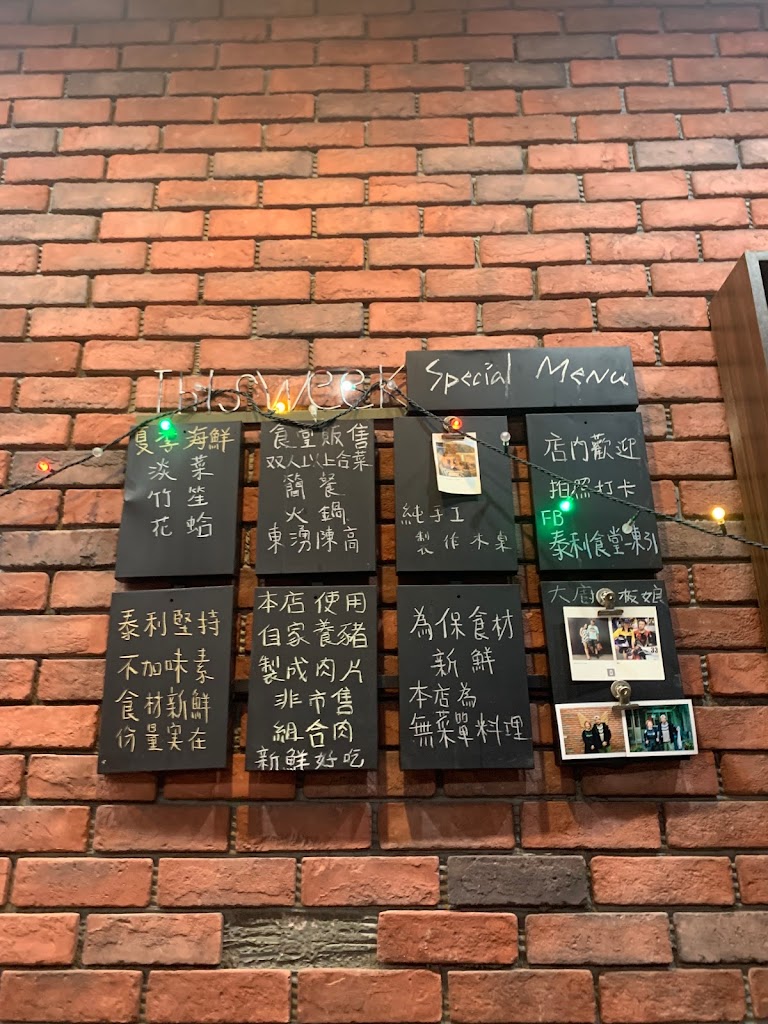 This week
Special Menu
夏季海鮮
淡菜
竹笙
花蛤
食堂販售
双人以上合菜
簡餐
火鍋
東湧陳高
純手工
製作木桌
店內歡迎
拍照打卡
FB
泰利食堂-東引
泰利堅持
不加味素
食材新鮮
份量実在
本店使用
自家養豬
製成肉片
非市售
組合肉
新鮮好吃
為保食材
新鮮
本店為
無菜單料理
大廚 板娘